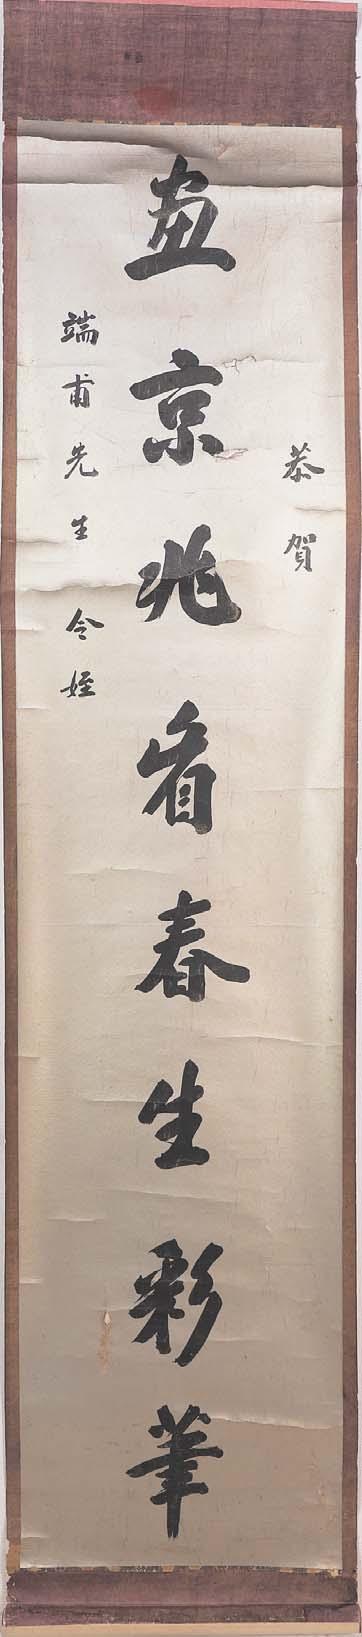 恭賀
画京兆看春生彩筆
端甫先生 令姪